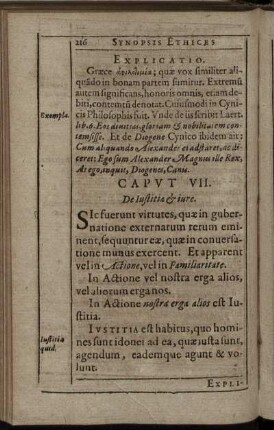 216 SYNOPSIS ETHICES
EXPLICATIO.
Græce quæ vox similiter ali-
quãdo in bonam partem sumitur. Extremũ
autem significans, honoris omnis, etiam de-
biti, contemtũ denotat. Cuiusmodi in Cyni-
Exempla.
cis Philosophis fuit. Vnde de iis scribit Laert.
lib. 6. Eos divitias, gloriam & nobilitatem con-
temsisse. Et de Diogene Cynico ibidem ait:
Cum aliquando Alexander ei adstaret, ac di-
ceret: Ego sum Alexander Magnus ille Rex,
At ego, inquit, Diogenes, Canis.
CAPVT VII.
De Iustitia & iure.
SIc fuerunt virtutes, quæ in guber-
natione externarum rerum emi-
nent, sequuntur eæ, quæ in conversa-
tione munus exercent. Et apparent
vel in Actione, vel in Familiaritate.
In Actione vel nostra erga alios,
vel aliorum erga nos.
In Actione nostra erga alios est Iu-
stitia.
Iustitia
quid.
IVSTITIA est habitus, quo homi-
nes sunt idonei ad ea, quæ iusta sunt,
agendum, eademque agunt & vo-
lunt.
EXPLI-